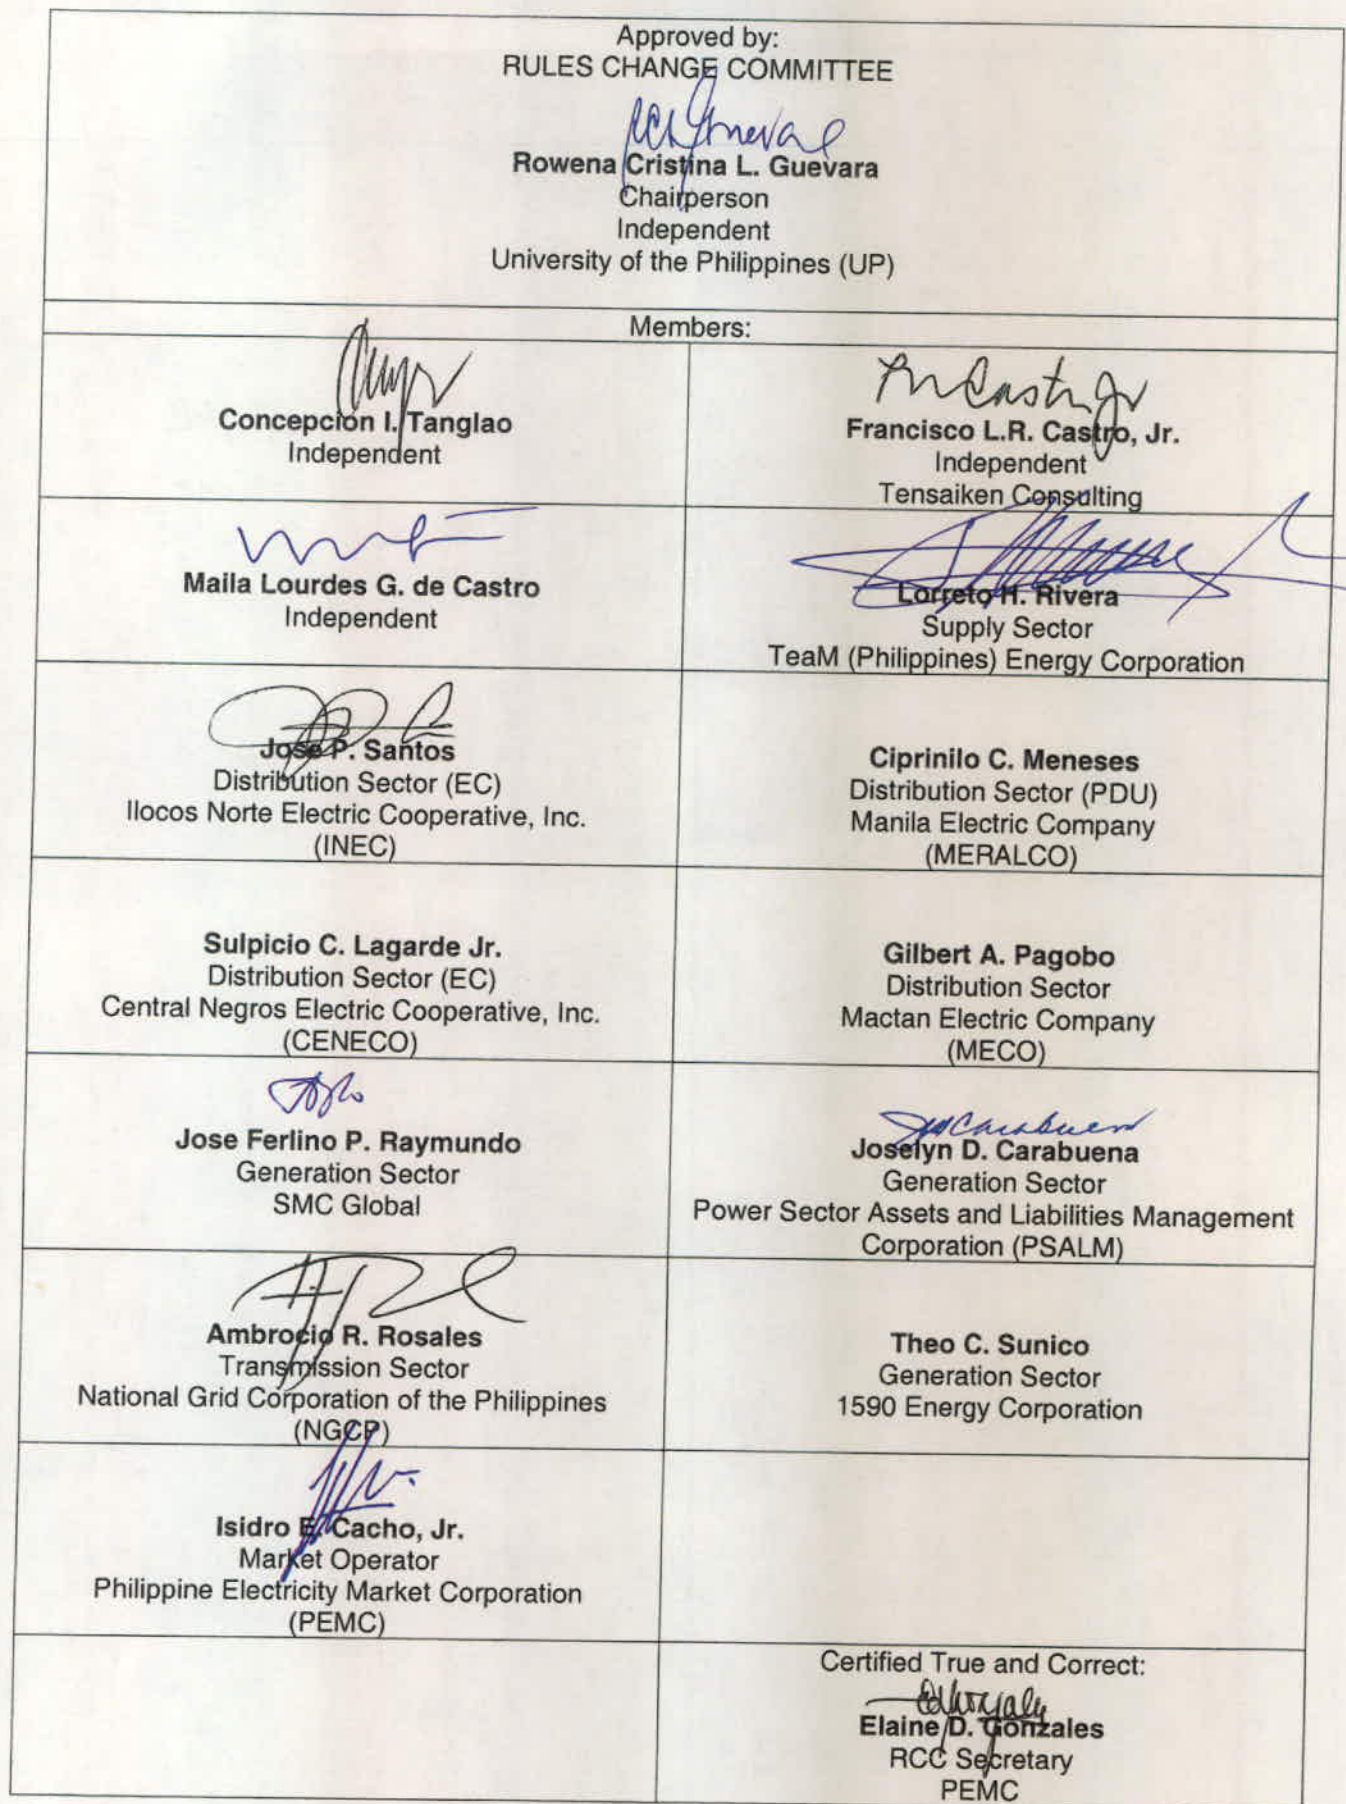 Approved by:
RULES CHANGE COMMITTEE
Rowena Cristina L. Guevara
Chairperson
Independent
University of the Philippines (UP)
Members:
Concepcion I. Tanglao
Independent
Francisco L.R. Castro, Jr.
Independent
Tensaiken Consulting
Maila Lourdes G. de Castro
Independent
Lorreto H. Rivera
Supply Sector
TeaM (Philippines) Energy Corporation
Jose P. Santos
Distribution Sector (EC)
Ilocos Norte Electric Cooperative, Inc.
(INEC)
Ciprinilo C. Meneses
Distribution Sector (PDU)
Manila Electric Company
(MERALCO)
Sulpicio C. Lagarde Jr.
Distribution Sector (EC)
Central Negros Electric Cooperative, Inc.
(CENECO)
Gilbert A. Pagobo
Distribution Sector
Mactan Electric Company
(MECO)
Jose Ferlino P. Raymundo
Generation Sector
SMC Global
Joselyn D. Carabuena
Generation Sector
Power Sector Assets and Liabilities Management
Corporation (PSALM)
Ambrocio R. Rosales
Transmission Sector
National Grid Corporation of the Philippines
(NGCP)
Theo C. Sunico
Generation Sector
1590 Energy Corporation
Isidro E. Cacho, Jr.
Market Operator
Philippine Electricity Market Corporation
(PEMC)
Certified True and Correct:
Elaine D. Gonzales
RCC Secretary
PEMC